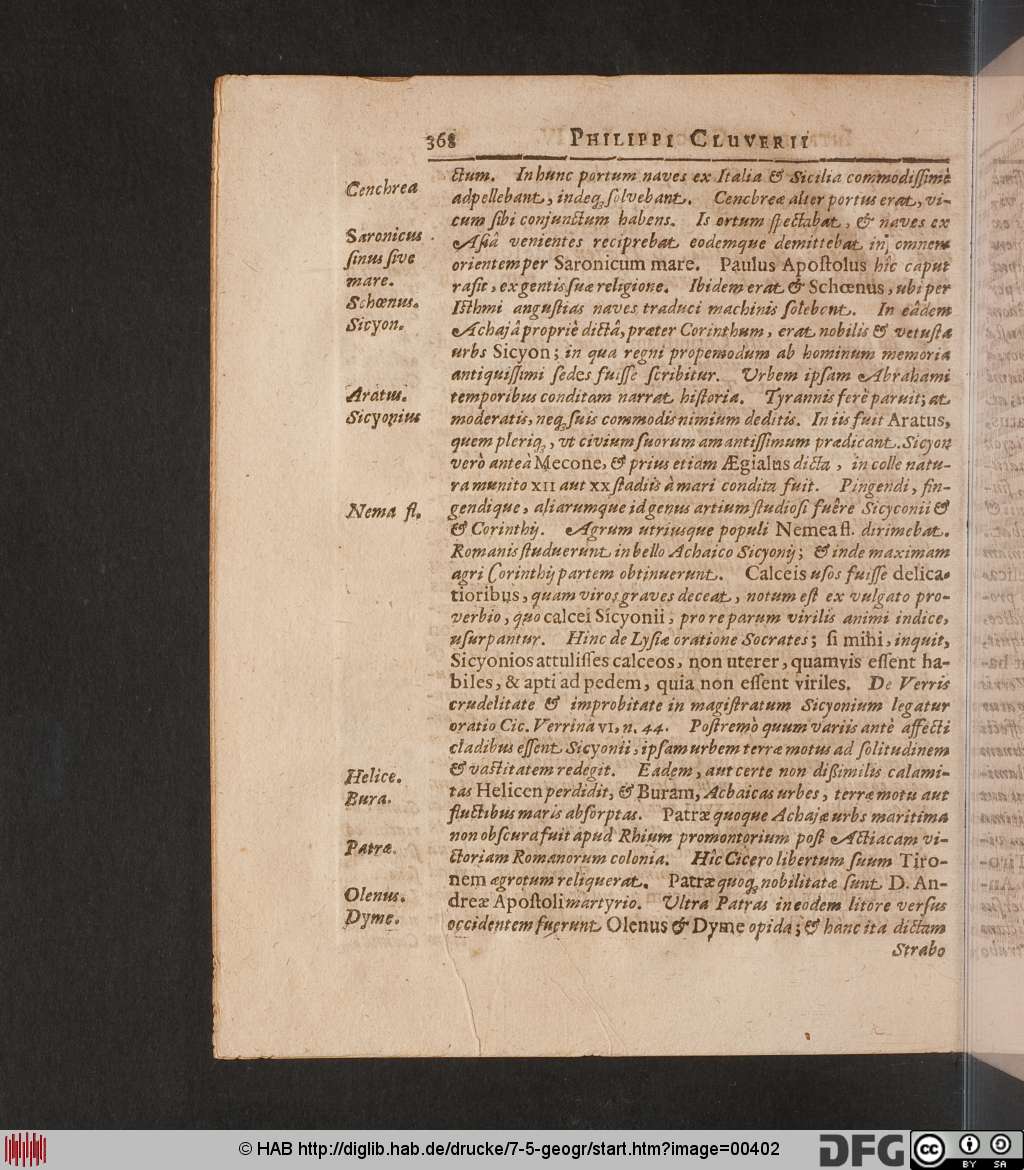 368 PHILIPPI CLUVERII
Cenchrea
Saronicus
sinus sive
mare.
Schœnus.
Sicyon.
Aratus.
Sicyonius
Nema fl.
Helice.
Bura.
Patræ.
Olenus.
Dyme.
ctum. In hunc portum naves ex Italia & Sicilia commodissimè
adpellebant, indeq; solvebant. Cenchreæ alter portus erat, vi-
cum sibi conjunctum habens. Is ortum spectabat, & naves ex
Asiâ venientes reciprebat eodemque demittebat in omnem
orientem per Saronicum mare. Paulus Apostolus hîc caput
rasit, ex gentis suæ religione. Ibidem erat & Schœnus, ubi per
Isthmi angustias naves traduci machinis solebent. In eâdem
Achajâ propriè dictâ, præter Corinthum, erat nobilis & vetusta
urbs Sicyon; in qua regni propemodum ab hominum memoria
antiquissimi sedes fuisse scribitur. Urbem ipsam Abrahami
temporibus conditam narrat historia. Tyrannis ferè paruit; at
moderatis, neq; suis commodis nimium deditis. In iis fuit Aratus,
quem pleriq;, vt civium suorum amantissimum prædicant. Sicyon
verò anteà Mecone, & prius etiam Ægialus dicta, in colle natu-
ra munito XII aut XX stadiis à mari condita fuit. Pingendi, fin-
gendique, aliarumque id genus artium studiosi fuêre Sicyconii &
& Corinthij. Agrum utriusque populi Nemea fl. dirimebat.
Romanis studuerunt in bello Achaico Sicyonij; & inde maximam
agri Corinthij partem obtinuerunt. Calceis usos fuisse delica-
tioribus, quam viros graves deceat, notum est ex vulgato pro-
verbio, quo calcei Sicyonii, pro re parum virilis animi indice,
usurpantur. Hinc de Lysiæ oratione Socrates; si mihi, inquit,
Sicyonios attulisses calceos, non uterer, quamvis essent ha-
biles, & apti ad pedem, quia non essent viriles. De Verris
crudelitate & improbitate in magistratum Sicyonium legatur
oratio Cic. Verrinà VI, n. 44. Postremò quum variis antè affecti
cladibus essent Sicyonii, ipsam urbem terræ motus ad solitudinem
& vastitatem redegit. Eadem, aut certe non dißimilis calami-
tas Helicen perdidit, & Buram, Achaicas urbes, terræ motu aut
fluctibus maris absorptas. Patræ quoque Achajæ urbs maritima
non obscura fuit apud Rhium promontorium post Actiacam vi-
ctoriam Romanorum colonia. Hîc Cicero libertum suum Tiro-
nem ægrotum reliquerat. Patræ quoq; nobilitatæ sunt D. An-
dreæ Apostoli martyrio. Ultra Patras in eodem litore versus
occidentem fuerunt Olenus & Dyme opida; & hanc ita dictam
Strabo
© HAB http://diglib.hab.de/drucke/7-5-geogr/start.htm?image=00402
DFG
cc
BY SA